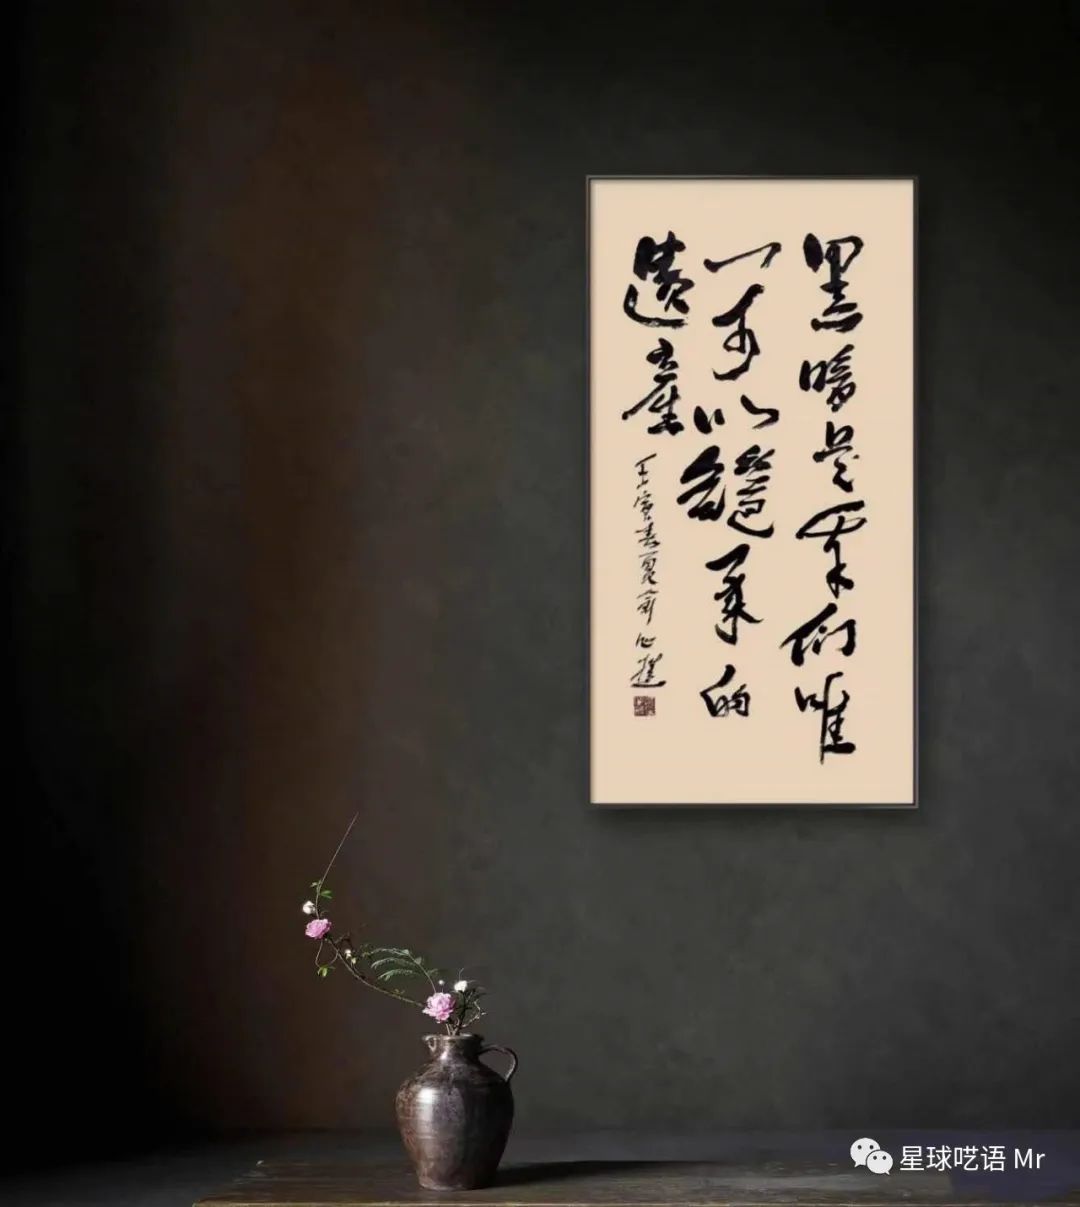 黑暗是我们唯
一可以继承的
遗产
壬寅春夏俞心樵
星球呓语 Mr